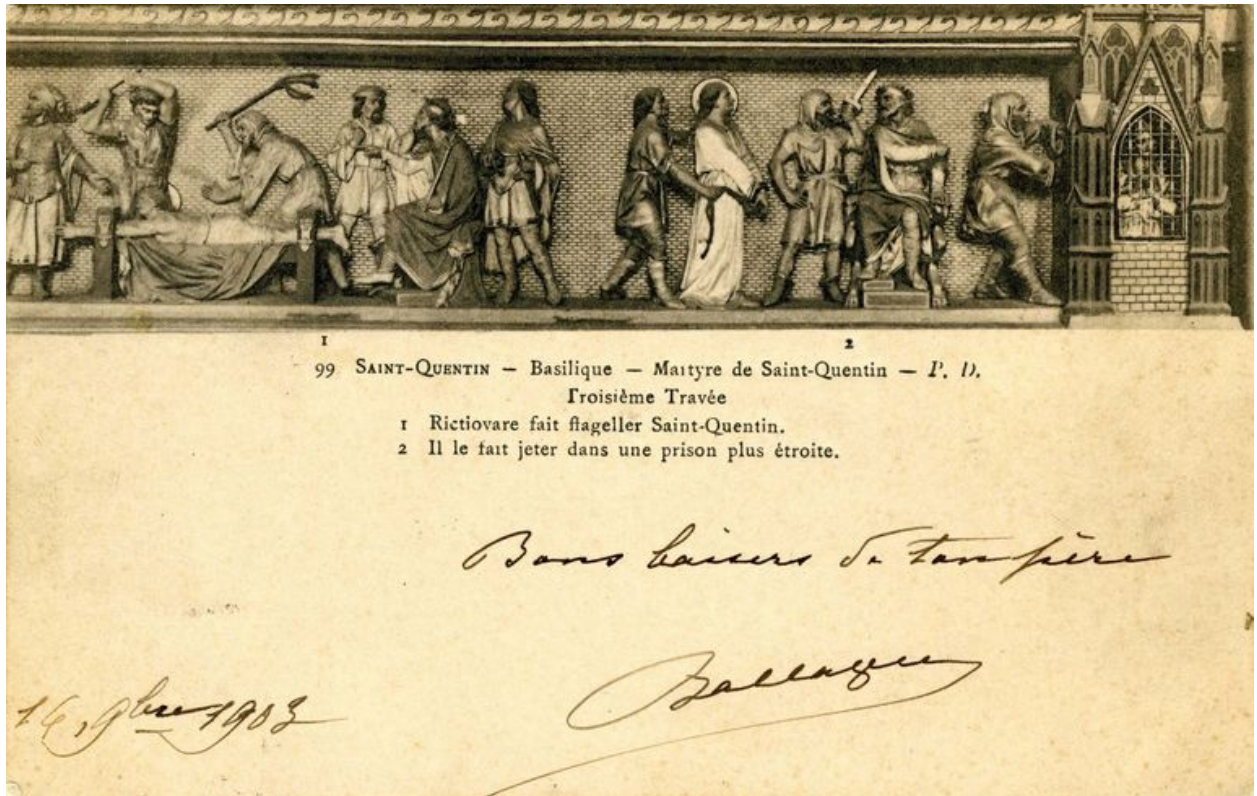 1 2
99 SAINT-QUENTIN — Basilique — Martyre de Saint-Quentin — P. D.
Troisième Travée
1 Rictiovare fait flageller Saint-Quentin.
2 Il le fait jeter dans une prison plus étroite.
Bons baisers de ton père
9bre 1903